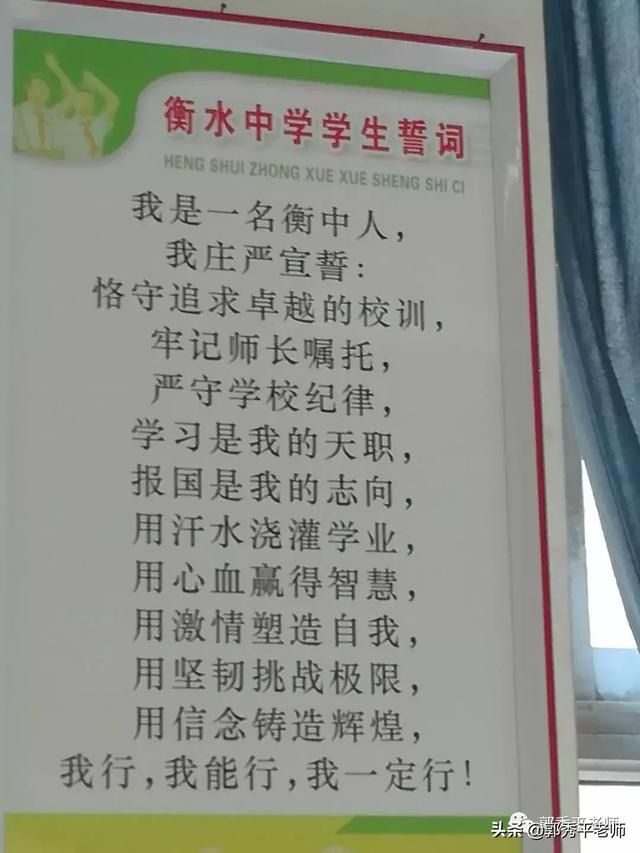 衡水中学学生誓词
HENG SHUI ZHONG XUE XUE SHENG SHI CI
我是一名衡中人，
我庄严宣誓：
恪守追求卓越的校训，
牢记师长嘱托，
严守学校纪律，
学习是我的天职，
报国是我的志向，
用汗水浇灌学业，
用心血赢得智慧，
用激情塑造自我，
用坚韧挑战极限，
用信念铸造辉煌，
我行，我能行，我一定行！
郭秀平老师
头条@郭秀平老师